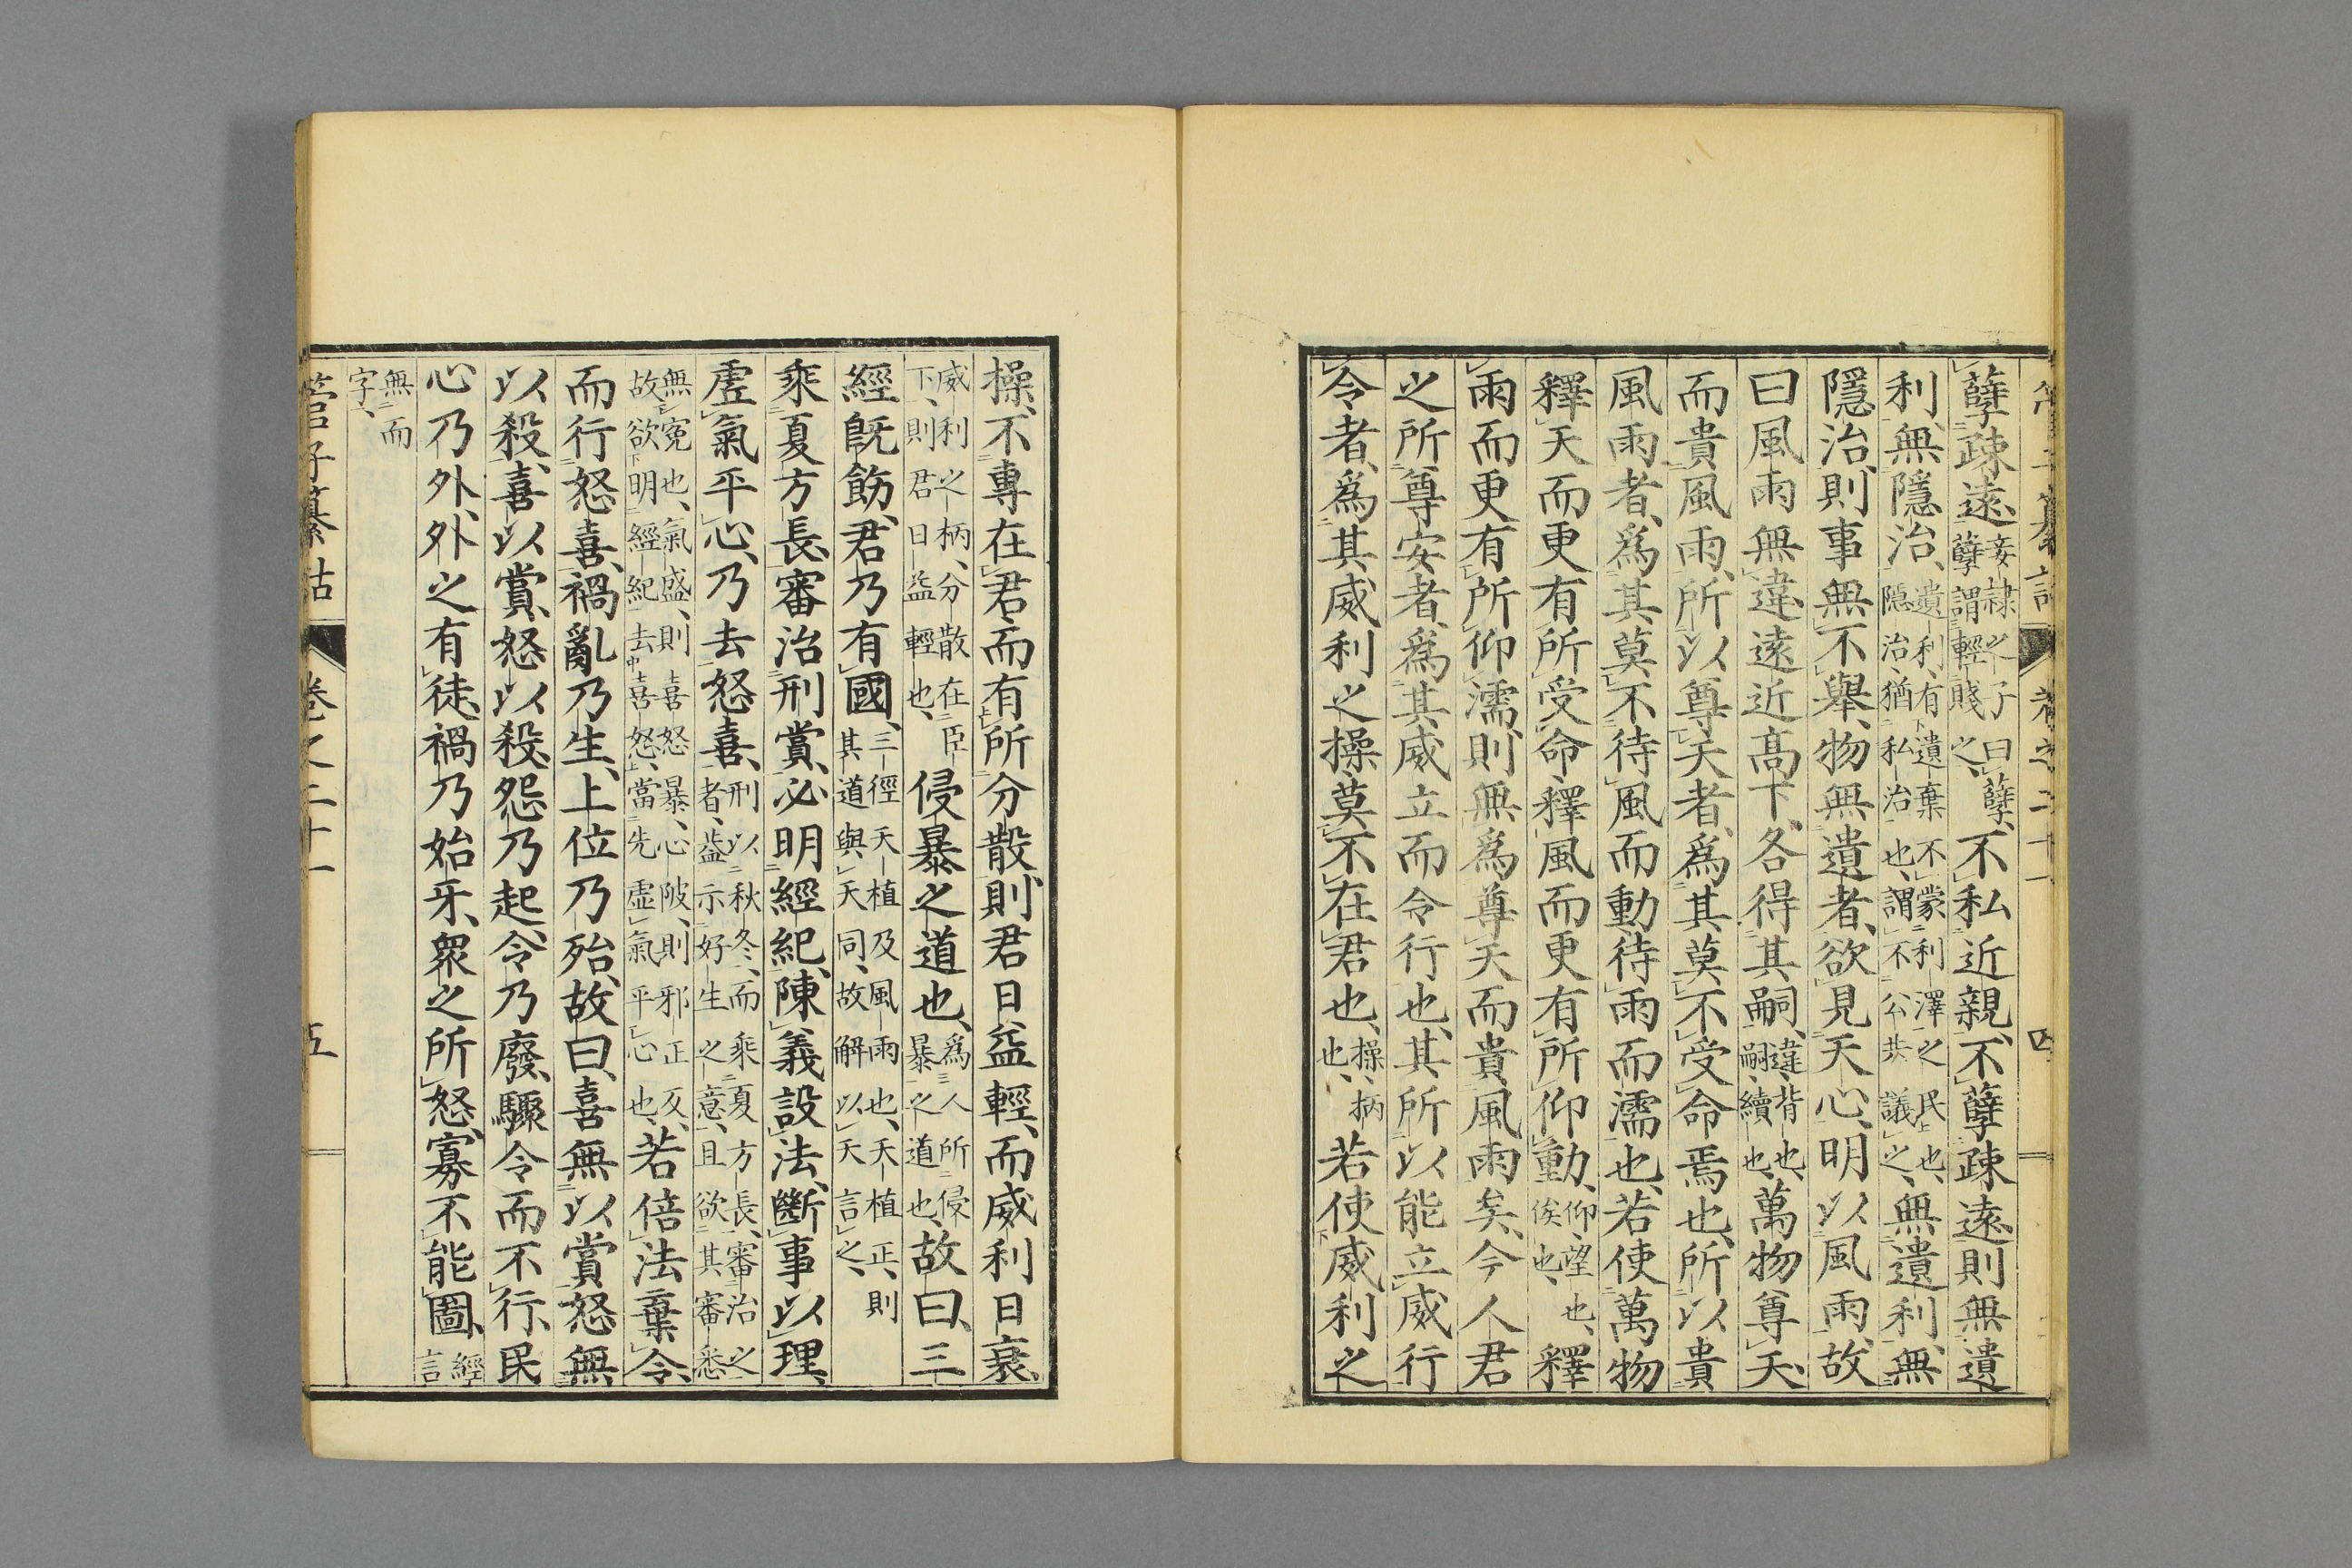 孽疎遠、妾隷之子曰孽、孽謂輕賤之、不私近親、不孽疎遠、則無遺
利、無隱治、遺利、有遺棄不蒙利澤之民也、隱治、猶私治也、謂不公共議之、無遺利、無
隱治、則事無不舉、物無遺者、欲見天心、明以風雨、故
曰、風雨無違、遠近高下、各得其嗣、違、背也、嗣、續也、萬物尊天、
而貴風雨、所以尊天者、爲其莫不受命焉也、所以貴
風雨者、爲其莫不待風而動、待雨而濡也、若使萬物
釋天而更有所受命、釋風而更有所仰動、仰、望也、俟也、釋
雨而更有所仰濡、則無爲尊天而貴風雨矣、今人君
之所尊安者、爲其威立而令行也、其所以能立威行
令者、爲其威利之操、莫不在君也、操、柄也、若使威利之
操、不專在君、而有所分散、則君日益輕、而威利日衰、
威利之柄、分散在臣下、則君日益輕也、侵暴之道也、爲人所侵暴之道也、故曰、三
經旣飭、君乃有國、三徑天植及風雨也、天植正、則其道與天同、故解以天言之、
乘夏方長、審治刑賞、必明經紀、陳義設法、斷事以理、
虛氣平心、乃去怒喜、刑以秋冬、而乘夏方長、審治之者、蓋示好生之意、且欲其審悉
無寃也、氣盛、則喜怒暴、心陂、則邪正反、故欲明經紀去喜怒、當先虛氣平心也、若倍法棄令、
而行怒喜、禍亂乃生、上位乃殆、故曰、喜無以賞、怒無
以殺、喜以賞、怒以殺、怨乃起、令乃廢、驟令而不行、民
心乃外、外之有徒、禍乃始牙、衆之所怒、寡不能圖、經言
無而字、
管子纂詁 卷之二十一 五